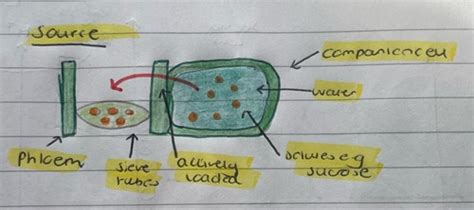 Source
companion cell
water
phloem
sieve
tubes
actively
loaded
solutes e.g
sucrose